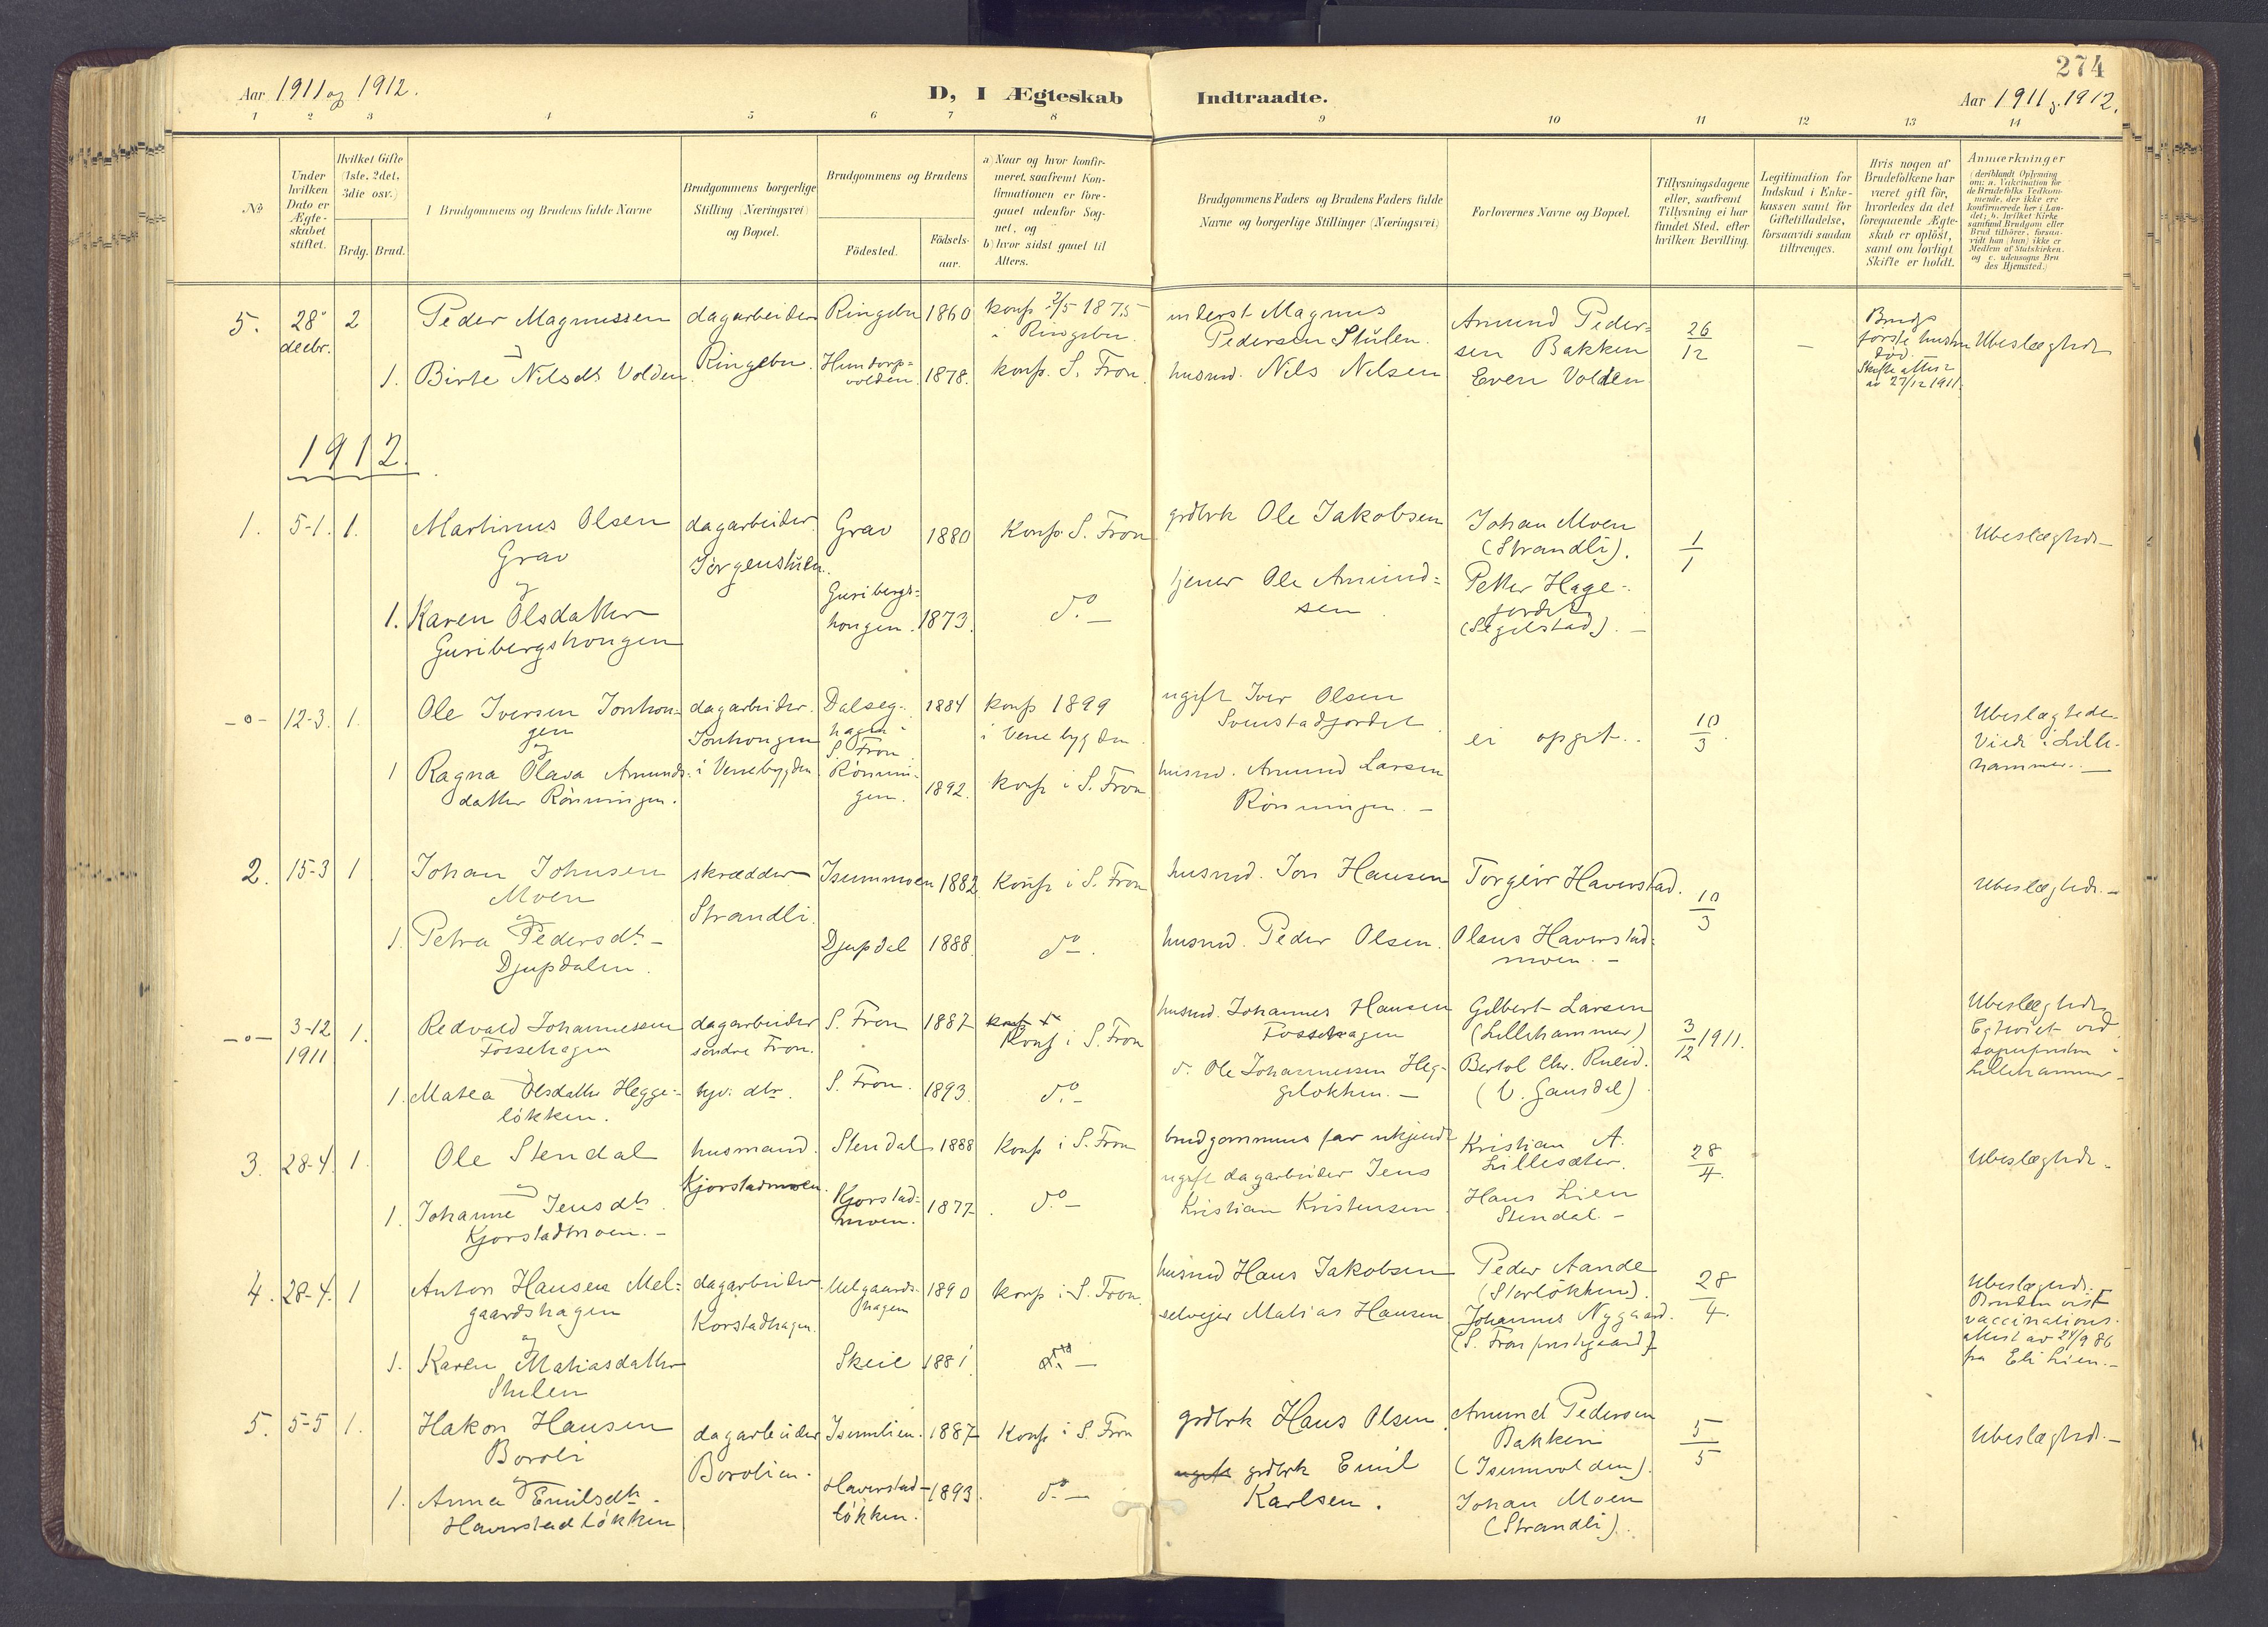 274
Aar 1911 og 1912.
D, I Ægteskab Indtraadte.
Aar 1911 g. 1912.
1 2 3 4 5 6 7 8 9 10 11 12 13 14
No
Under hvilken Dato er Ægte-skabet stiftet.
Hvilket Gifte (1ste, 2det, 3die osv.)
Brdg. Brud.
Brudgommens og Brudens fulde Navne
Brudgommens borgerlige Stilling (Næringsvei) og Bopæl.
Brudgommens og Brudens
Födested. Födsels-aar.
a) Naar og hvor konfir-meret, saafremt Kon-firmationen er fore-gaaet udenfor Sog-net, og
b) hvor sidst gaaet til Alters.
Brudgommens Faders og Brudens Faders fulde Navne og borgerlige Stillinger (Næringsvei)
Forlovernes Navne og Bopæl.
Tillysningsdagene eller, saafremt Tillysning ei har fundet Sted, efter hvilken Bevilling.
Legitimation for Indskud i Enke-kassen samt for Giftetilladelse, forsaavidt saadan tiltrænges.
Hvis nogen af Brudefolkene har været gift för, hvorledes da det foregaaende Ægte-skab er oplöst, samt om lovligt Skifte er holdt.
Anmærkninger (deriblandt Oplysning om: a. Vakcination for de Brudefolks Vedkom-mende, der ikke ere konfirmerede her i Lan-det; b. hvilket Kirke samfund Brudgom eller Brud tilhörer, forsaa-vidt han (hun) ikke er Medlem af Statskirken. og c. udensogns Bru des Hjemsted.)
5. 28 decbr. 2 Peder Magnussen dagarbeider Ringebu 1860 konf 2/5 1875 i Ringebu.
inderst Magnus Pedersen Stulen. Amund Peder-sen Bakken 26/12 — Brudg första hustru död. Skifteattest av 27/12 1911 Ubeslægtede
1. Birte Nilsdt Volden Ringebu. Hundorp-volden 1878. konf. S. Fron
husmd. Nils Nilsen Even Volden
1912.
1. 5-1. 1. Martinus Olsen Grav dagarbeider Jörgenstulen. Grav 1880 Konf. S. Fron
grdbrk Ole Jakobsen Johan Moen (Strandli). 1/1 Ubeslægtede
og
1. Karen Olsdatter Guribergshougen Guribergs-hougen. 1873. do —
tjener Ole Amund-sen Petter Hage-jordet (Segelstad). —
-o- 12-3. 1. Ole Iversen Jonhou-gen dagarbeider. Jonhougen i Venebygden Dalseg-hagen S. Fron 1884 konf 1899 i Venebygden.
ugift Iver Olsen Svenstadjordet ei opgit.. 10/3. Ubeslægtede. Viede i Lille-hammer. —
og
1 Ragna Olava Amunds-datter Rönningen. Rönnin-gen. 1892. konf i S. Fron
husmd. Amund Larsen Rönningen. —
2. 15-3 1 Johan Johnsen Moen skrædder Strandli. Isummoen 1882 Konf i S. Fron
husmd. Jon Hansen Torgeir Haverstad. 10/3 Ubeslægtede. —
og
1. Petra Pedersdt — Djupdalen. Djupdal 1888. do —.
husmd. Peder Olsen. Olaus Haverstad-moen. —
-o- 3-12 1911 1. Redvald Johannessen Fossehagen dagarbeider söndre Fron. S. Fron 1887 Konf i S. Fron
husmd. Johannes Hansen Fossehagen Gilbert Larsen (Lillehammer) 3/12 1911. Ubeslægtede Egteviet ved sorenskriveren i Lillehammer.
1. Matea Olsdatter Hegge-lökken. hjv. dtr. S. Fron. 1893. do —
do. Ole Johannessen Heg-gelökken. — Bertol Chr. (V. Gausdal)
3. 28-4. 1. Ole Stendal husmand. Kjorstadmoen. Stendal 1888 Konf i S. Fron
brudgommens far ukjendt Kristian A. Lillesæter. 28/4. Ubeslægtede.
og
1. Johanne Jensdt. Kjorstadmoen. — Kjorstad-moen. 1877. do —
ugift dagarbeider Jens Kristian Kristensen Hans Lien Stendal. —
4. 28-4. 1 Anton Hansen Mel-gaardshagen dagarbeider. Korstadhagen. Melgaards-hagen 1890 konf i S. Fron.
husmd Hans Jakobsen Peder Aande (Storlökken). 28/4. Ubeslægtede. Bruden vist vaccinations-attest av 24/9 86 fra Eli Lien. —
og
1. Karen Matiasdatter Stulen Skeie 1881 do —
selvejer Matias Hansen Johannes Nygaard. (S. Fron prestegaard)
5. 5-5 1. Hakon Hansen Boroli dagarbeider Borolien. Isumlien. 1887 Konf i S. Fron
grdbrk Hans Olsen Amund Pedersen Bakken (Isumvolden). 5/5 Ubeslægtede. —
og
1. Anna Emilsdtr. Haverstadlökken Haverstad-lökken. 1893. do —
ugift grdbrk Emil Karlsen. Johan Moen (Strandli).